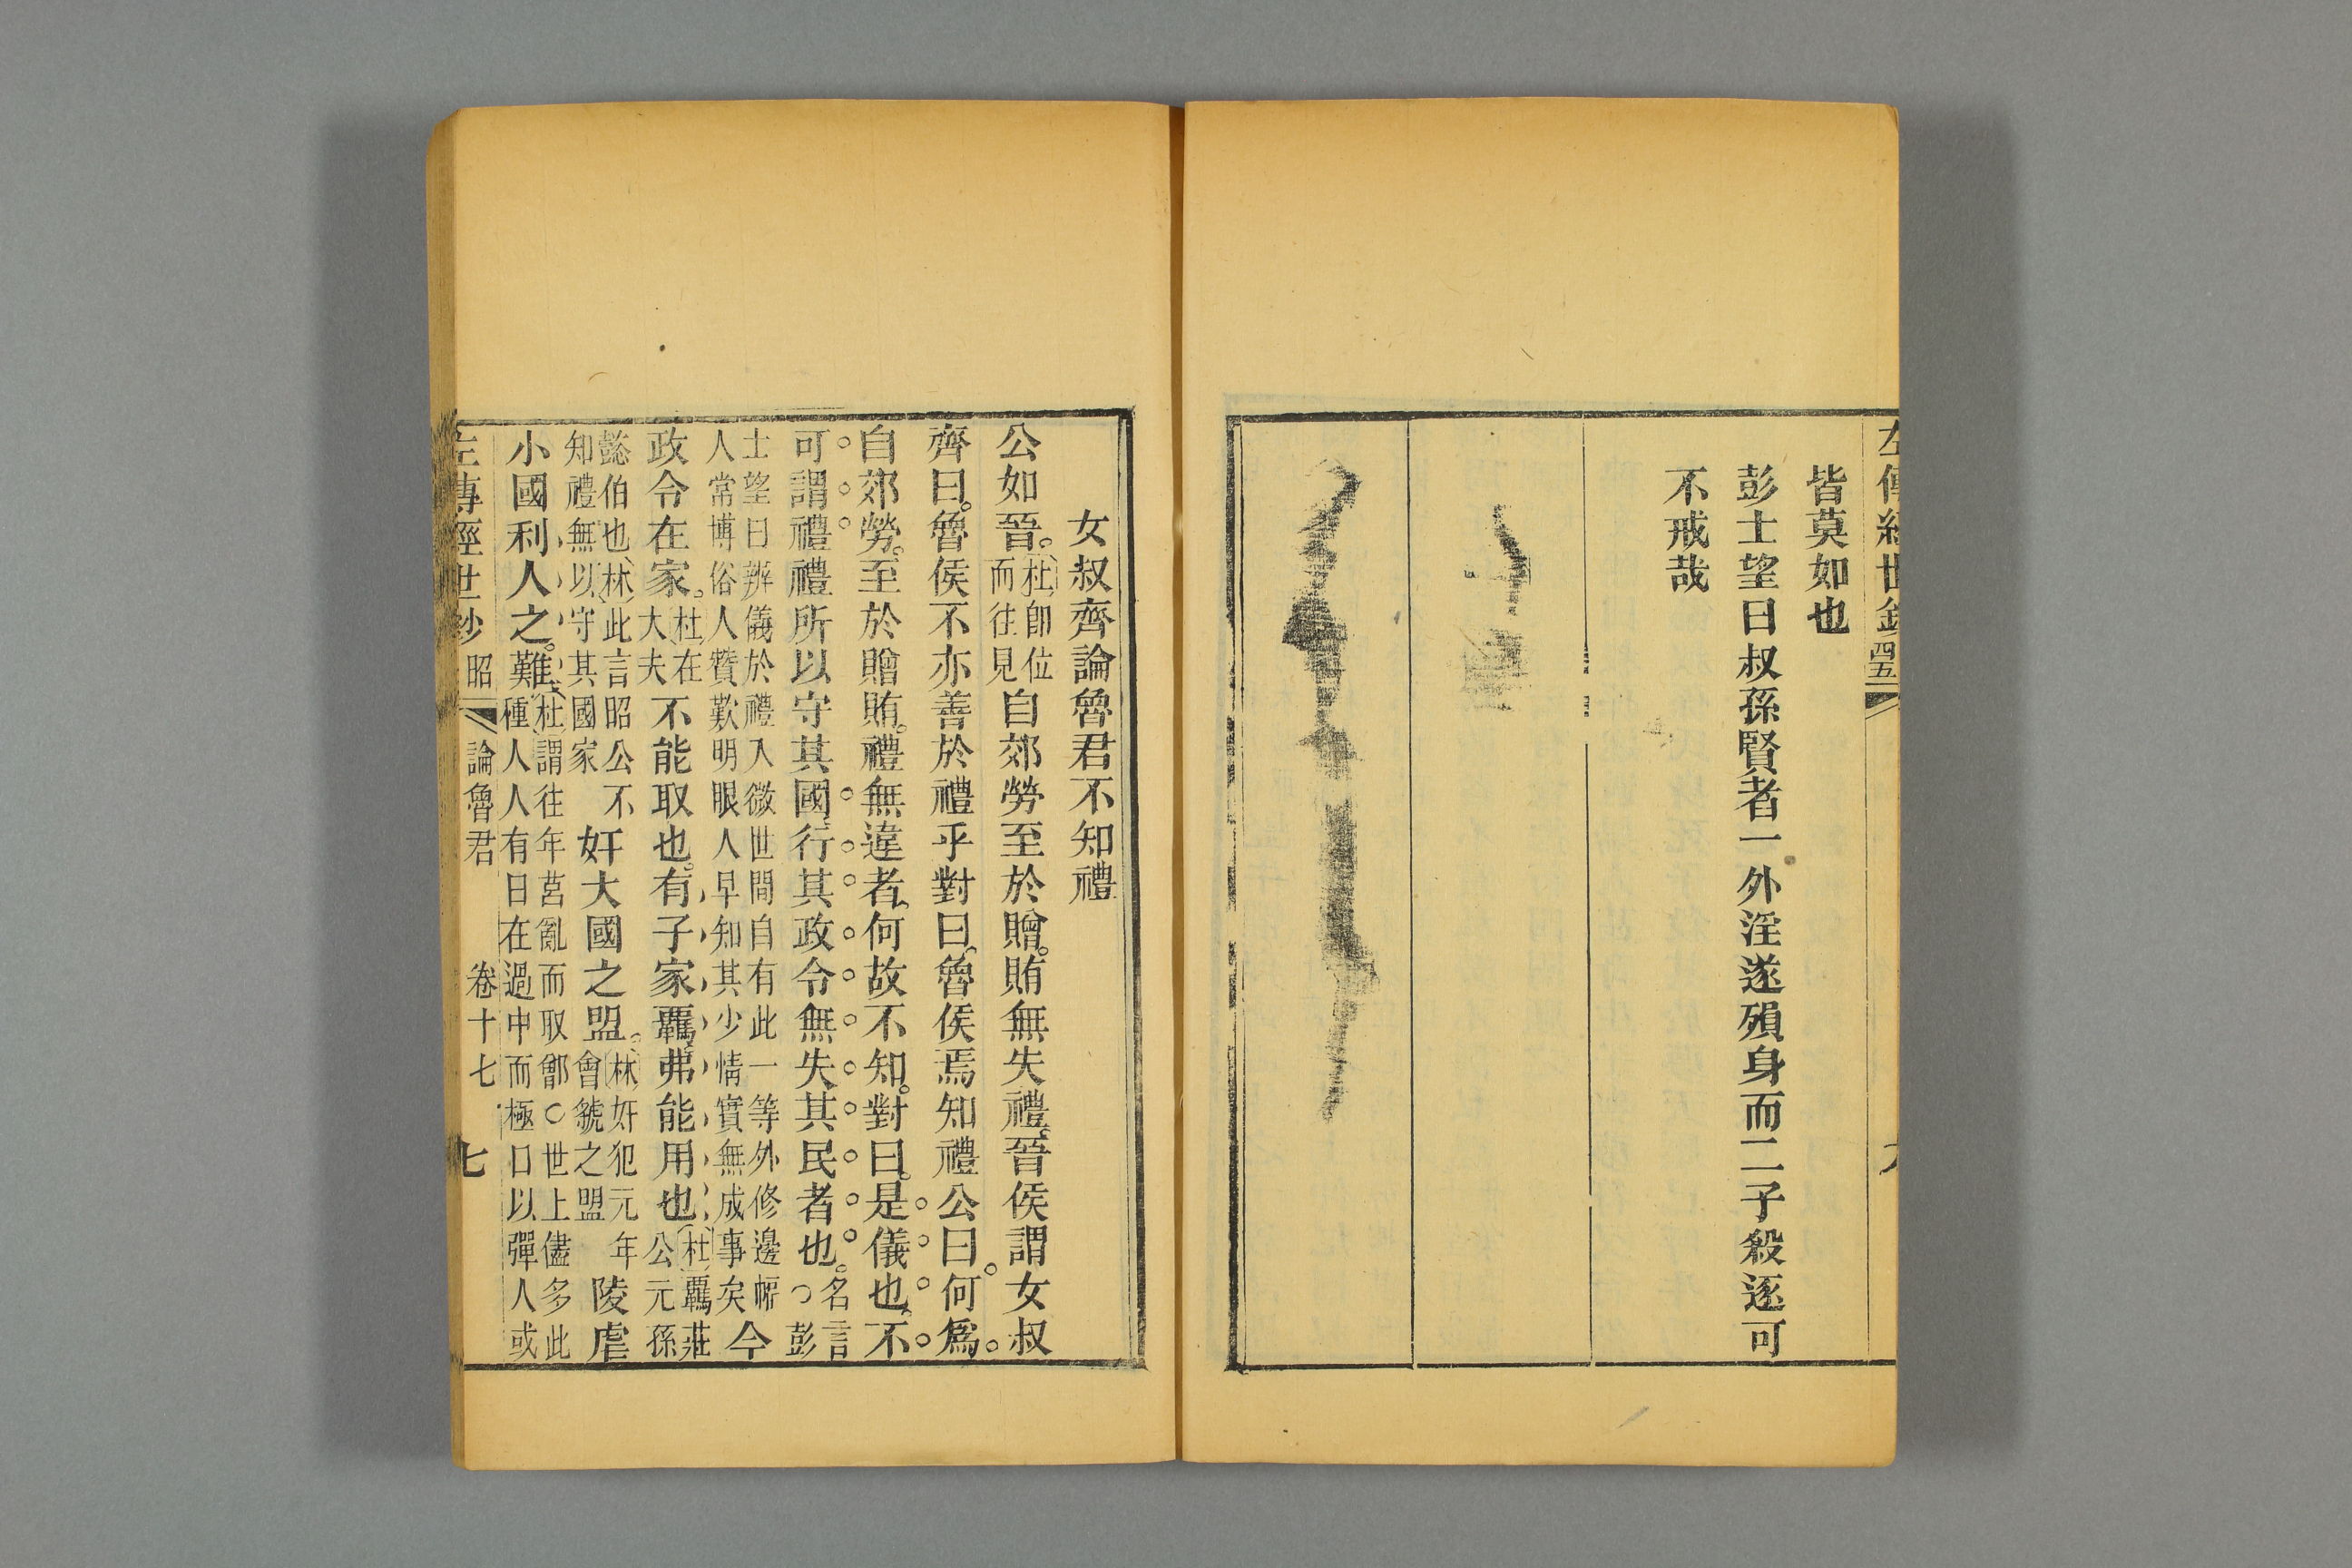 左傳經世鈔 四五
皆莫如也
彭士望曰叔孫賢者一外淫遂殞身而二子殺逐可
不戒哉
女叔齊論魯君不知禮
公如晉。杜卽位而往見自郊勞至於贈。賄無失禮。晉侯謂女叔
齊曰。魯侯不亦善於禮乎對曰。魯侯焉知禮公曰。何爲。
自郊勞。至於贈賄。禮無違者。何故不知。對曰。是儀也。不
可謂禮禮所以守其國。行其政令無失其民者也。名言○彭
士望曰辨儀於禮入微世間自有此一等外修邊幅人常博俗人贊歎明眼人早知其少情實無成事矣今
政令在家。杜在大夫不能取也。有子家羈。弗能用也杜羈莊公元孫
懿伯也林此言昭公不知禮無以守其國家奸大國之盟。林奸犯元年會虢之盟陵虐
小國利人之。難杜謂往年莒亂而取鄫○世上儘多此種人人有日在過中而極口以彈人或
左傳經世鈔 昭 論魯君 卷十七 七